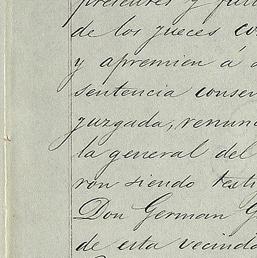 de los jueces co
y apremien á
sentencia conser
juzgada, renun
la general del
ron siendo testi
Don German G
de esta vecinda